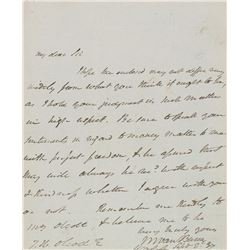 My dear Sir
I hope the enclosed may not differ very
widely from what you think it ought to be,
as I hold your judgment in such matters
in high respect. Be sure to speak your
sentiments in regard to money matters to me
with perfect freedom, & be assured that
they will always be with respect
& kindness whether I agree with you
or not. Remember me kindly to
Mrs Olcott & believe me to be
very truly yours
M Van Buren
T. W. Olcott E